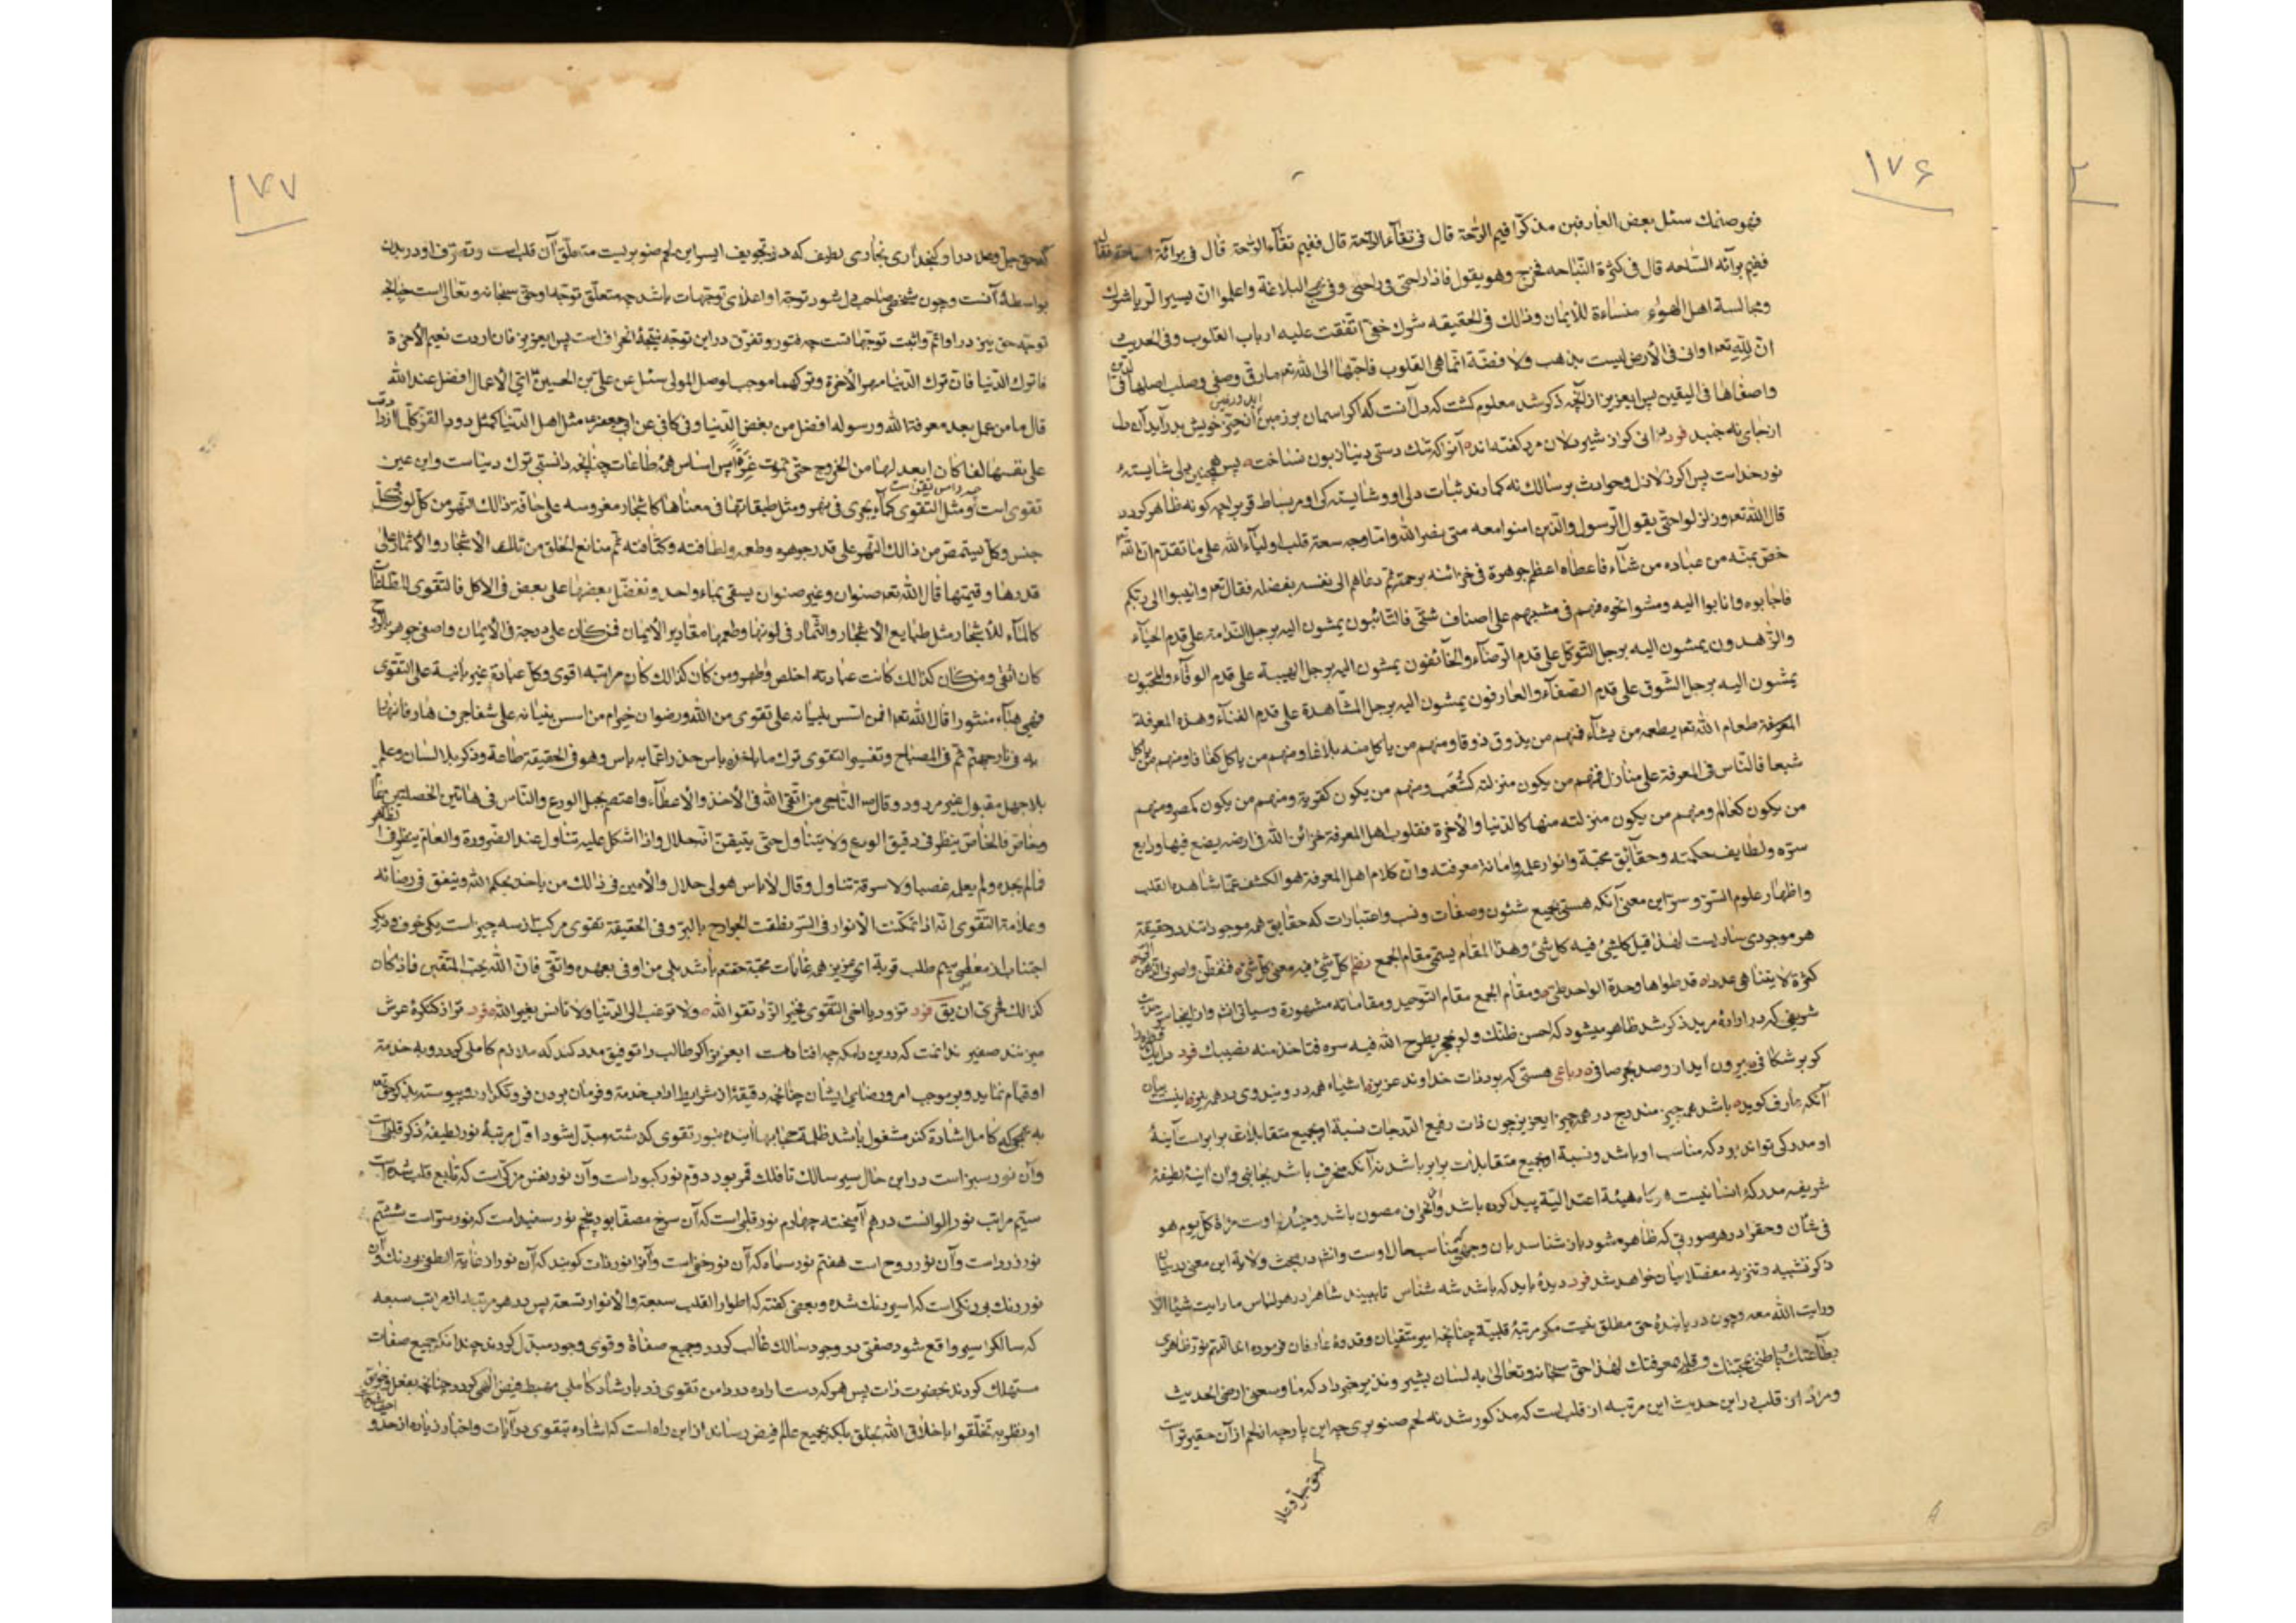 ١٧۶
فهو صنمك سئل بعض العارفين مذكرا فيم الراحة قال في تقاء الراحة قال ففيم تقاء الراحة قال في برائة الساحة فقال
ففيم برائه الساحه قال في كثرة النياحه فخرج وهو يقول فاذا راحتى في راحتى وفي نهج البلاغة واعلموا ان يسير الرياء شرك
ومجالسة اهل الهواء منساءة للأيمان وذالك في الحقيقه شرك خفى اتفقت عليه ارباب القلوب وفي الحديث
ان لله تعه اواني في الأرض ليست بذهب ولا فضة انما هى القلوب فاحبها الى الله تعه ما رق وصفى وصلب اصلبها في الدين
واصفاها في اليقين پس ايعزيز از آنچه ذكر شد معلوم كشت كه دل آنست كه اكر اسمان بر زمين آيد و زمين از حيز خويش بدر آيد آن دل
از جاى نه جنبد فرد مرانى كو از شير دلان مرد كفته اند آنرا كه تنك دستى دنيا زبون نساخت پس همچنين دلى شايسته
نور خداست پس اكر زلازل وحوادث بر سالك نه كمارند ثبات دلى او وشايسته كى او مر بساط قرب را چه كونه ظاهر كردد
قال الله تعه وزلزلوا حتى يقول الرسول والذين امنوا معه متى نصر الله واما وجه سعة قلب اولياء الله على ما تقدم ان الله
خص بمنه من عباده من شاء فاعطاه اعظم جوهرة في خزائنه برحمته ثم دعاهم الى نفسه بفضله فقال تعه وانيبوا الى ربكم
فاجابوه وانابوا اليه ومشوا نحوه فهم في مشيهم على اصناف شتى فالتائبون يمشون اليه برجل الندامة على قدم الحياء
والزاهدون يمشون اليه برجل التوكل على قدم الرضاء والخائفون يمشون اليه برجل الهيبة على قدم الوفاء والمحبون
يمشون اليه برجل الشوق على قدم الصفاء والعارفون يمشون اليه برجل المشاهدة على قدم الفناء وهذه المعرفة
المعرفة طعام الله تعه يطعمه من يشاء فمنهم من يذوق ذوقا ومنهم من ياكل منه بلاغا ومنهم من ياكل كفافا ومنهم من ياكل
شبعا فالناس في المعرفة على منازل فمنهم من يكون منزلته كشعب ومنهم من يكون كقرية ومنهم من يكون كمصر ومنهم
من يكون كعالم ومنهم من يكون منزلته منها كالدنيا والأخرة فقلوب اهل المعرفة خزائن الله في ارضه يضع فيها ودايع
سره ولطايف حكمته وحقايق محبة وانوار علمه وامانة معرفته وان كلام اهل المعرفة هو الكشف عما شاهده القلب
واظهار علوم السر وسر اين معنى آنكه هستى بجميع شئون وصفات ونسب واعتبارات كه حقايق همه موجوداتند در حقيقة
هر موجودى ساريست لهذا قيل كلشئ فيه كلشئ وهذا المقام يسمى مقام الجمع نظم كل شئ فيه معنى كل شئ فتفطن واصرف الذهن الى
كثرة لا يتناهى عددا قد طوتها وحدة الواحد طى ومقام الجمع مقام التوحيد ومقاماته مشهورة وسياتى انشه وان اينجا سر حديث
شريفى كه در ارادۀ مريد ذكر شد ظاهر ميشود كه احسن ظنك ولو بحجر يطرح الله فيه سره فتاخذ منه نصيبك فرد دل يك قطره را
كر برشكافى برون آيد ازو صد بحر صافى رباعى هستى كه بود ذات خداوند عزيز اشياء همه در ويند وى در همه نيز اينست بيان
آنكه عارف كويد باشد همه چيز مندرج در همه چيز ايعزيز چون ذات رفيع الدرجات نسبة او بجميع متقابلات برابر است آينۀ
او مدركى تواند بود كه مناسب او باشد ونسبة او بجميع متقابلات برابر باشد نه آنكه منحرف باشد بجانبى وآن اينۀ لطيفۀ
شريفه مدركۀ انسانيست هر كاه هيئة اعتداليّة پيدا كرده باشد واز انحراف مصون باشد وچنان اوست مراة كل يوم هو
في شأن وحقرا در هر صورتى كه ظاهر شود باز شناسد بان وجهى كه مناسب حال اوست وانشه در مبحث ولاية اين معنى بيان
ذكر تشبيه وتنزيه مفصلا بيان خواهد شد فرد ديدۀ بايد كه باشد شه شناس تا ببيند شاهرا در هر لباس ما رايت شيئا الا
ورايت الله معه وچون دريابندۀ حق مطلق نيست مكر مرتبۀ قلبية چنانچه امير متقيان وقدوۀ عارفان فرموده اللهم نور ظاهرى
بطاعتك وباطنى بمحبتك وقلبى بمعرفتك لهذا حق سبحانه وتعالى به لسان بشير ونذير خبر داد كه ما وسعنى ارضى الحديث
ومراد از قلب در اين حديث اين مرتبه از قلب است كه مذكور شد نه لحم صنوبرى چه اين پارچه از لحم از آن حقيرتر است
كه حق جل وعلا
١٧٧
كه حق جل وعلا در او كنجد آرى بخارى لطيف كه در تجويف ايسر اين لحم صنوبريست متعلق آن قلب است وتصرف او در بدن
بواسطۀ آنست وچون شخصى صاحب دل شود توجه او اعلاى توجهات باشد چه متعلق توجه او حق سبحانه وتعالى است چنانچه
توجه حق نيز در او اتم واثبت توجهاتست چه فتور وتفرق در اين توجه نتيجۀ انحراف است پس ايعزيز فان اردت نعيم الأخرة
فاترك الدنيا فان ترك الدنيا مهر الأخرة وتركهما موجب لوصل المولى سئل عن على بن الحسين ع اى الأعمال افضل عند الله
قال ما من عمل بعد معرفة الله ورسوله افضل من بغض الدنيا وفى كافى عن ابى جعفر ع مثل اهل الدنيا كمثل دود القز كلما ازدادت
على نفسها لفا كان ابعد لها من الخروج حتى تموت غرقا پس اساس همۀ طاعات چنانچه دانستى ترك دنياست واين عين
تقوى است ومثل التقوى كماء يجرى في نهر ومثل طبقاتها في معناها كاشجار مغروسه على حافة ذالك النهر من كل لون وكل
جنس وكل يستمص من ذالك النهر على قدر جوهره وطعمه ولطافته وكثافته ثم منافع الخلق من تلك الاشجار والأثمار على
قدرها وقيمتها قال الله تعه صنوان وغير صنوان يسقى بماء واحد ونفضل بعضها على بعض في الاكل فالتقوى للطاعات
كالماء للأشجار مثل طبايع الاشجار والثمار في لونها وطعمها مقادير الأيمان فمن كان على درجة في الأيمان واصفى جوهر بالروح
كان اتقى ومن كان كذالك كانت عبادته اخلص واطهر ومن كان كذالك كان مراتبه اقوى وكل عبادة غير بانية على التقوى
فهى هباء منثورا قال الله تعه افمن اسس بنيانه على تقوى من الله ورضوان خير ام من اسس بنيانه على شفا جرف هار فانهار
به في نار جهنم ثم في المصباح وتفسير التقوى ترك ما ياخذه باس حذرا عما به باس وهو في الحقيقة طاعة وذكر بلا نسيان وعلم
بلا جهل مقبول غير مردود وقال س الناجى من اتقى الله في الأخذ والأعطاء واعتصم بحبل الورع والناس في هاتين الخصلتين عام
وخاص فالخاص ينظر في دقيق الورع ولا يتناول حتى يتيقن انه حلال واذا اشكل عليه تناول عند الضرورة والعام ينظر في الظاهر
فما لم يجده ولم يعلمه غصبا ولا سرقة تناول وقال لا باس هو لى حلال والأمين في ذالك من ياخذ بحكم الله وينفق في رضائه
وعلامة التقوى انه اذا تمكنت الأنوار في السر نطقت الجوارح بالبر وفي الحقيقة تقوى مركب از سه چيز است يكى خوف ديكر
اجتناب از معاصى سيم طلب قربة اى عزيز همه غايات محبة ختم باشد بلى من اوفى بعهده واتقى فان الله يحب المتقين فاذا كان
كذالك فحرى ان يق فرد تزود يا اخى التقوى فخير الزاد تقوا الله ولا ترغب الى الدنيا ولا تأنس بغير الله فرد ترا ز كنكرۀ عرش
ميزنند صفير ندانمت كه در اين دامكه چه افتادهست ايعزيز اكر طالب را توفيق مدد كند كه ملازم كاملى كردد وبه خدمة
او قيام نمايد وبر موجب امر ورضاى ايشان چنانچه دقيقۀ از شرايط اداب خدمة وفرمان بودن فرو نكذارد وپيوسته بذكر حق
به نهجى كه كامل اشاره كند مشغول باشد ظلمة حجابها آينده بنور تقوى كذشته مبدل شود اول مرتبۀ نور لطيفۀ ذكر قلب است
وآن نور سبز است در اين حال سير سالك تا فلك قمر بود دوم نور كبود است وآن نور نفس مزكى است كه تابع قلب شده است
سيم مراتب نور الوانست در هم آميخته چهارم نور قلبى است كه آن سرخ مصفا بود پنجم نور سفيد است كه نور سر است ششم
نور زرد است وآن نور روح است هفتم نور سياه كه آن نور خفى است وآنرا نور ذات كويند كه آن نور از غاية الطفى بيرنك وآن
نور رنك بى رنكى است كه اسير رنك شده وبعضى كفته كه اطوار القلب سبعة والأنوار تسعة پس بدهر مرتبه از مراتب سبعه
كه سالكرا سير واقع شود صفتى در وجود سالك غالب كردد وجميع صفاة وقوى وجود مبدل كردند چندانكه جميع صفات
مستهلك كردند بحضرت ذات پس هر كه دست اراده در دامن تقوى زد بارشاد كاملى مهبط فيض الهى كردد چنانچه بفعل
او نظر به تخلقوا باخلاق الله بخلق بلكه بجميع عالم فيض رساند از اين راه است كه اشاره بتقوى در آيات واخبار زياده از حد و